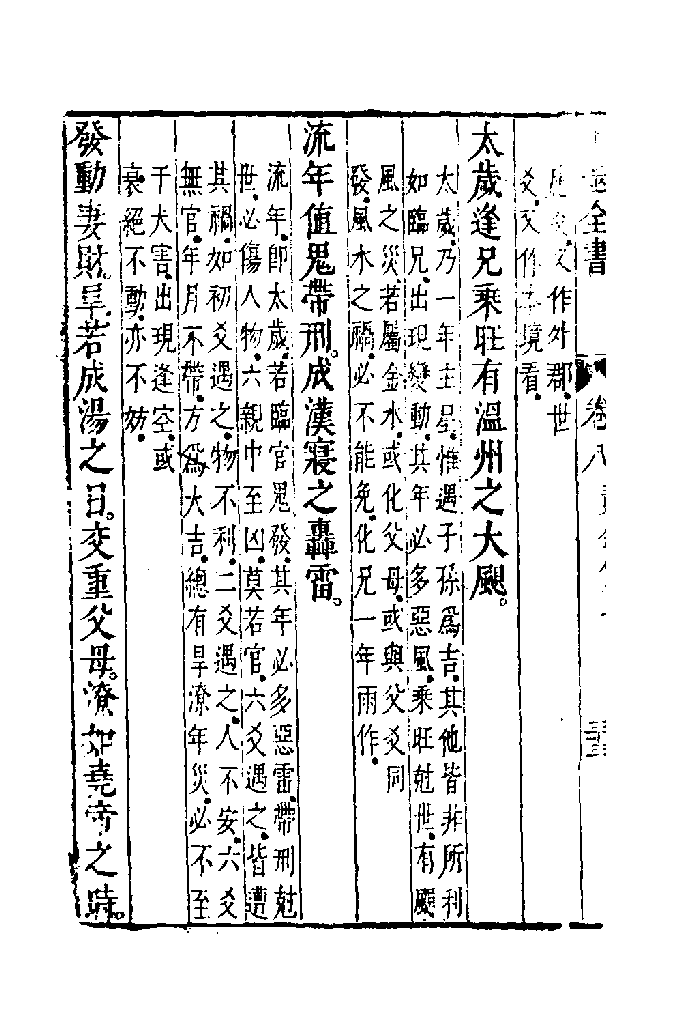 全書 卷八
應爻又作外郡世
爻又作本境看
太歲逢兄乘旺有溫州之大颶。
太歲乃一年主星惟遇子孫爲吉其他皆非所利
如臨兄出現變動其年必多惡風乘旺尅世有颶
風之災若屬金水或化父母或與父爻同
發風水之禍必不能免化兄一年雨作
流年值鬼帶刑成漢寢之轟雷。
流年卽太歲若臨官鬼發其年必多惡雷帶刑尅
世必傷人物六親中至凶莫若官六爻遇之皆遭
其禍如初爻遇之物不利二爻遇之人不安六爻
無官年月不帶方爲大吉總有旱潦年災必不至
干大害出現逢空或
衰絕不動亦不妨
發動妻財旱若成湯之日。交重父母潦如堯帝之時。